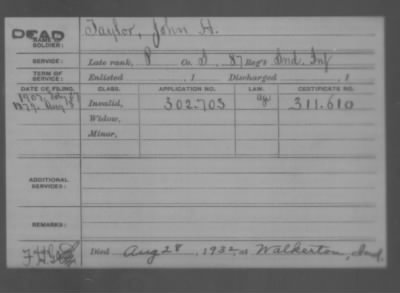 DEAD
NAME OF SOLDIER: Taylor, John H.
SERVICE: Late rank, P Co. D 87 Reg't Ind. Inf
TERM OF SERVICE: Enlisted , 1 Discharged , 1
DATE OF FILING. CLASS. APPLICATION NO. LAW. CERTIFICATE NO.
1907
1879. Aug Invalid, 302.703 Age 311.610
Widow,
Minor,
ADDITIONAL SERVICES:
REMARKS:
Died Aug 28, 1932, at Walkerton, Ind.